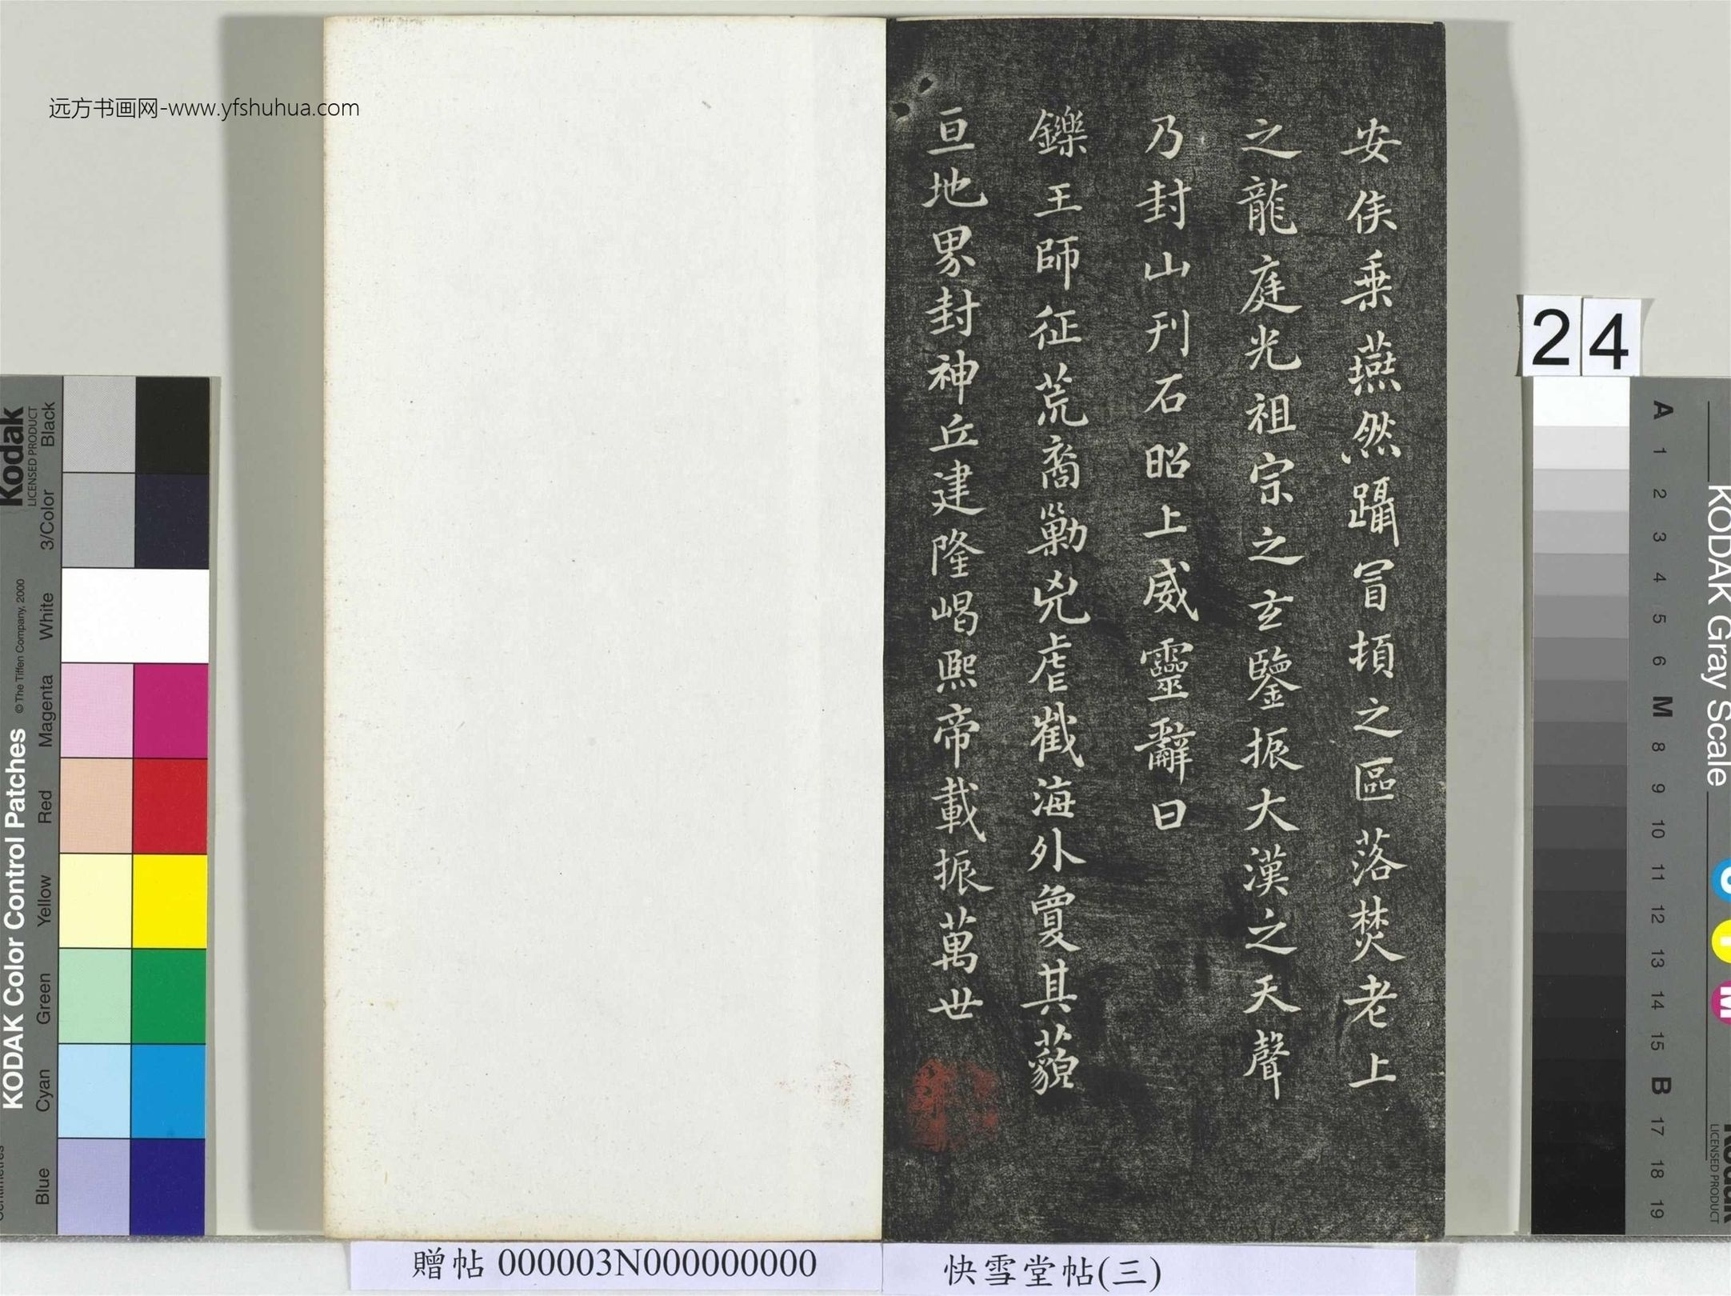 远方书画网-www.yfshuhua.com
安侯乗燕然躡冐頓之區落焚老上
之龍庭光祖宗之玄鑒振大漢之天聲
乃封山刊石昭上威靈辭曰
鑠王師征荒裔勦兇虐截海外敻其藐
亘地界封神丘建隆嵑熙帝載振萬世
贈帖 000003N000000000
快雪堂帖(三)
24
KODAK Color Control Patches
© The Tiffen Company, 2000
Kodak
LICENSED PRODUCT
Blue
Cyan
Green
Yellow
Red
Magenta
White
3/Color
Black
KODAK Gray Scale
A
1
2
3
4
5
6
M
8
9
10
11
12
13
14
15
B
17
18
19
LICENSED PRODUCT